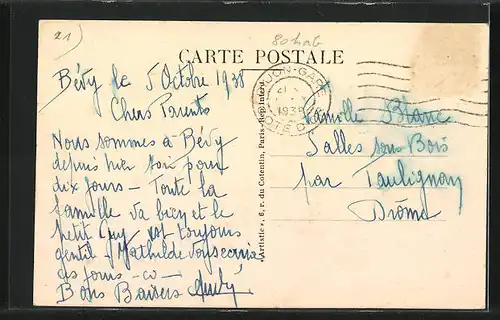 21
CARTE POSTALE
Bévy le 5 Octobre 1938
Chers Parents
Nous sommes à Bévy
depuis hier soir pour
dix jours - Toute la
famille va bien et le
petit Guy est toujours
gentil - Mathilde vous écrira
ces jours-ci -
Bons Baisers André
DIJON-GARE
1938
CÔTE D'OR
Famille Blanc
Salles sous Bois
par Taulignan
Drôme
« Artistic », 6, r. du Cotentin, Paris - Rep. Interd.